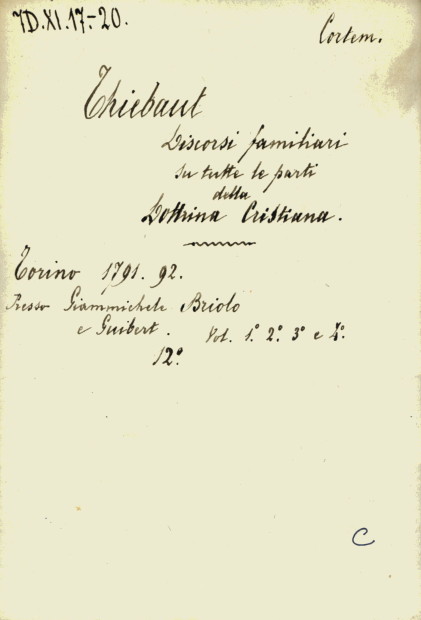 7D.XI.17-20.
Cortem.
Thiebaut
Discorsi familiari
su tutte le parti
della
Dottrina Cristiana.
Torino 1791. 92.
Presso Giammichele Briolo
e Guibert. Vol. 1° 2° 3° e 4°
12°
C